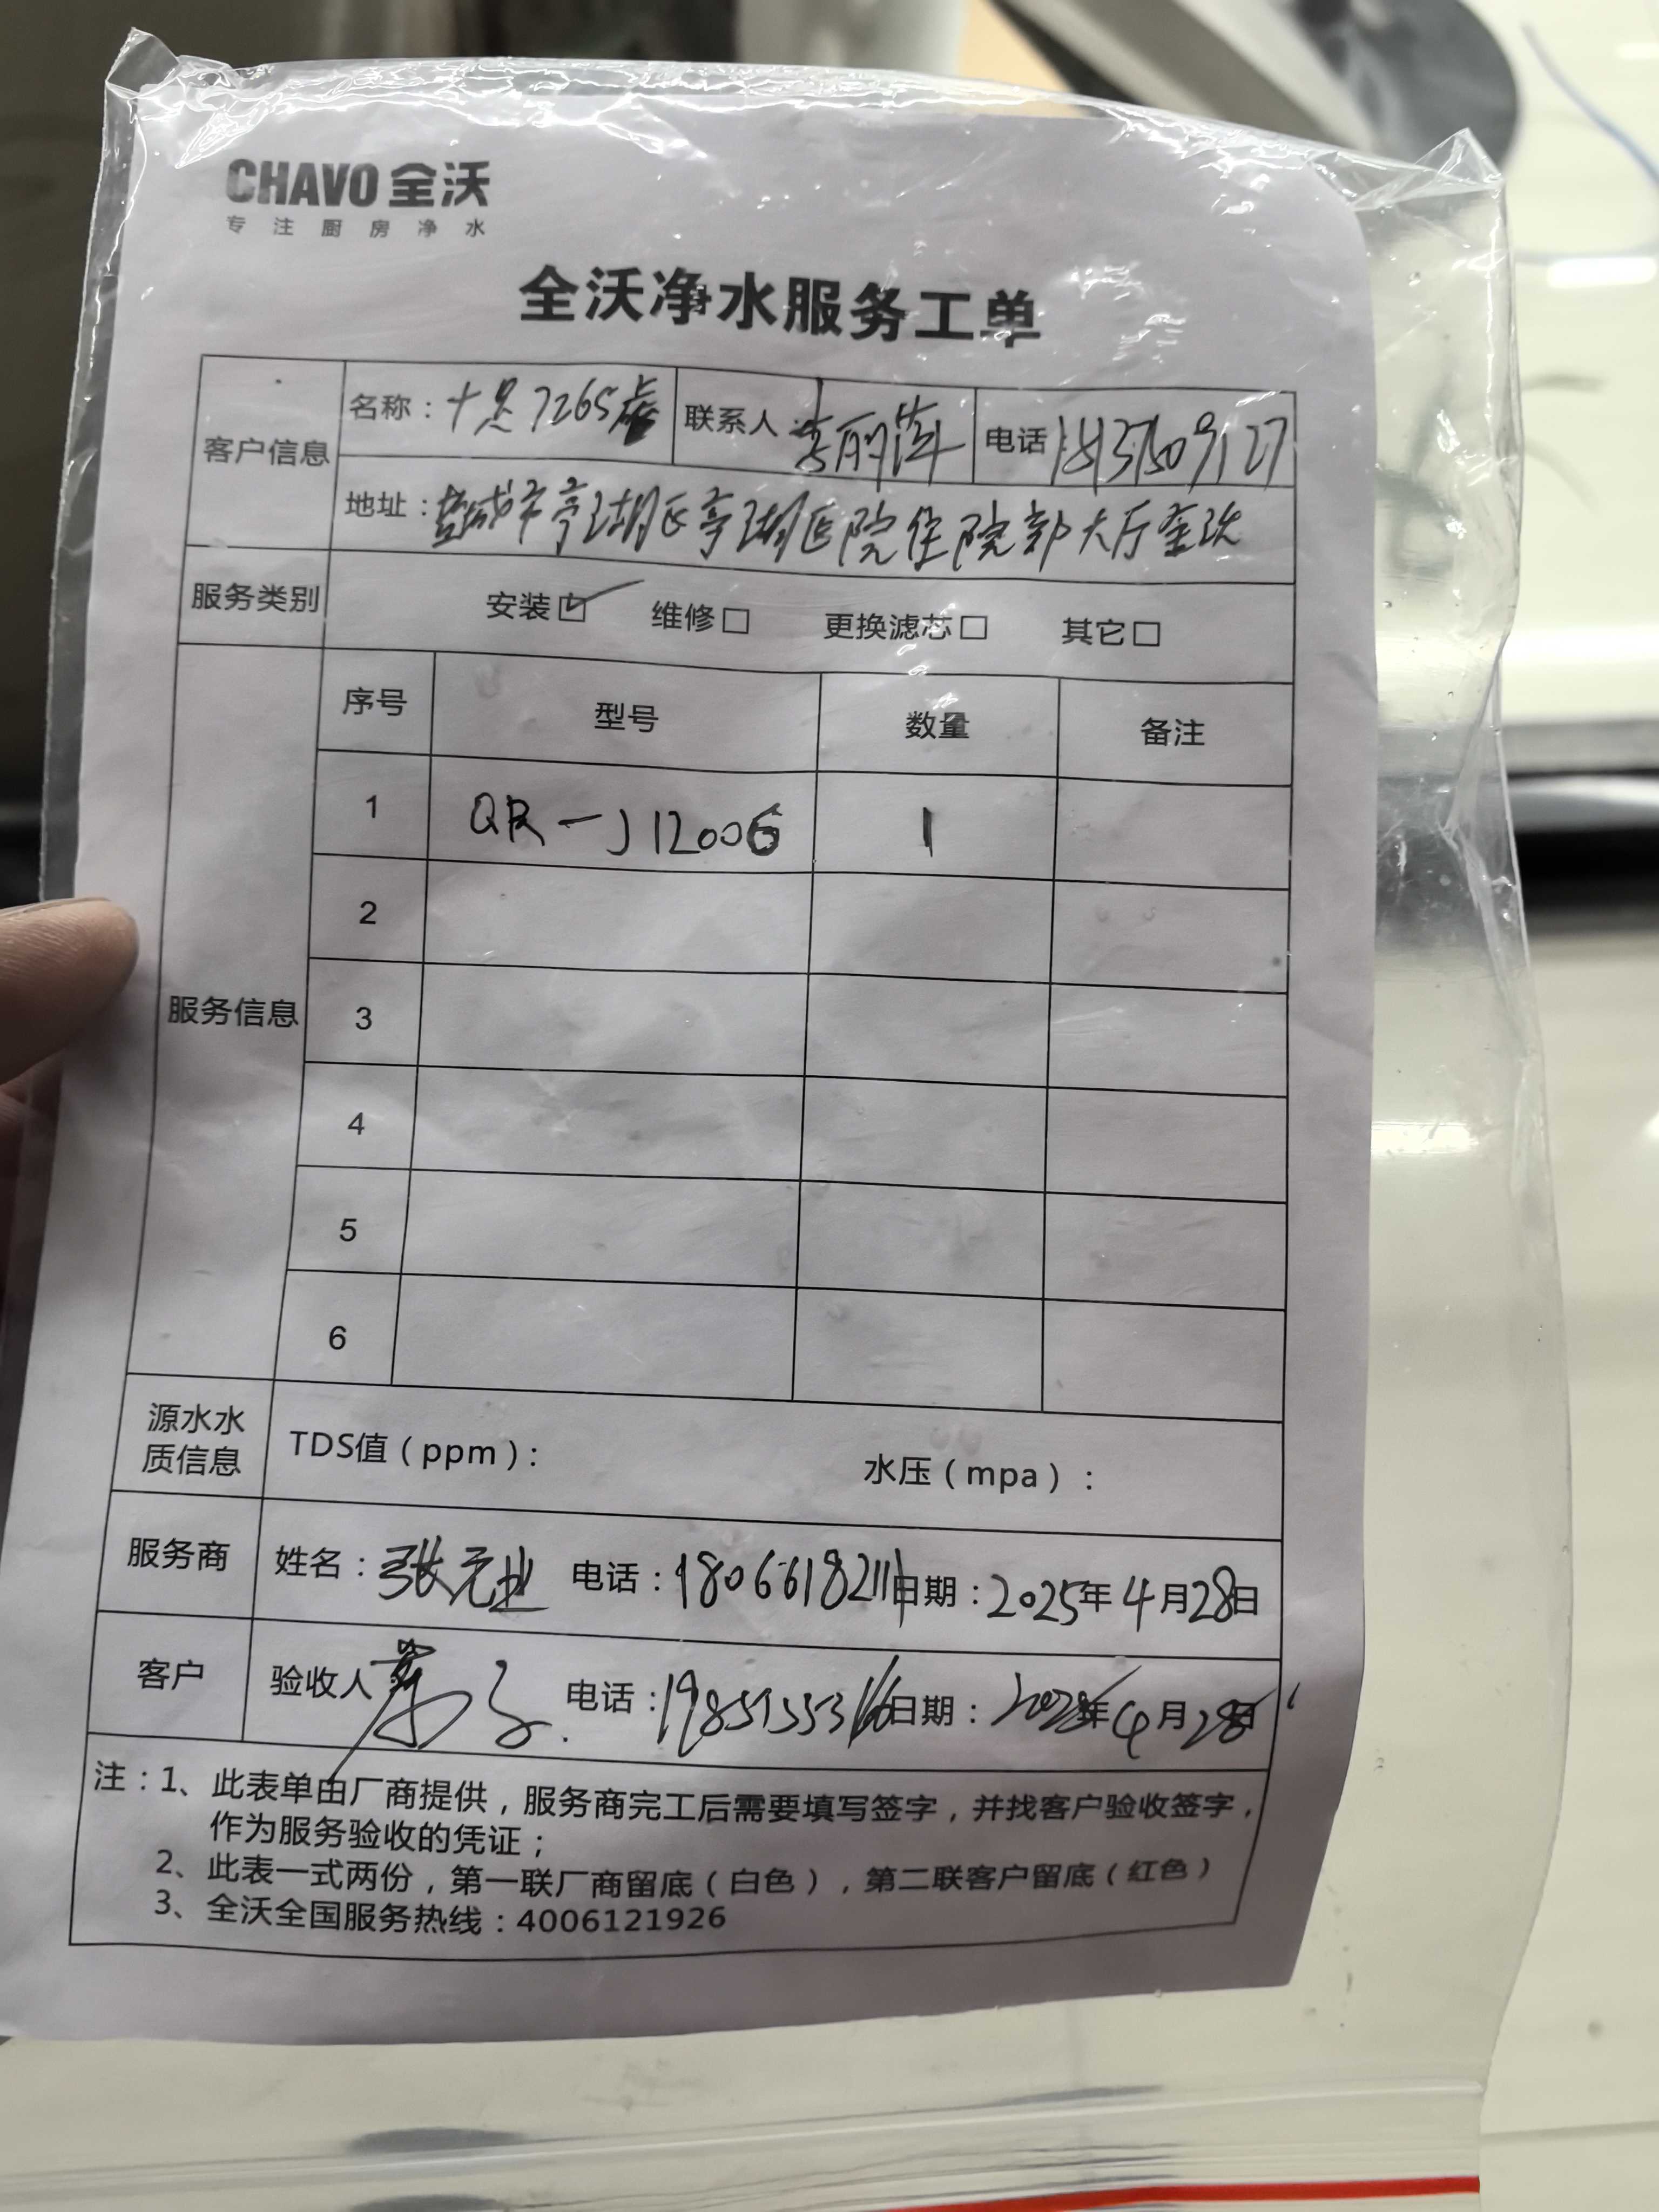 CHAVO 全沃
专注厨房净水
全沃净水服务工单
客户信息
名称：十足7265店
联系人：李丽萍
电话
地址：盐城市亭湖区亭湖医院住院部大厅
服务类别
安装☑ 维修□ 更换滤芯□ 其它□
服务信息
序号 型号 数量 备注
1 QR-J12006 1
2
3
4
5
6
源水水质信息
TDS值（ppm）： 水压（mpa）：
服务商 姓名：张元业 电话：18066182111 日期：2025年4月28日
客户 验收人 电话： 日期：2025年4月28日
注：1、此表单由厂商提供，服务商完工后需要填写签字，并找客户验收签字，
作为服务验收的凭证；
2、此表一式两份，第一联厂商留底（白色），第二联客户留底（红色）
3、全沃全国服务热线：4006121926